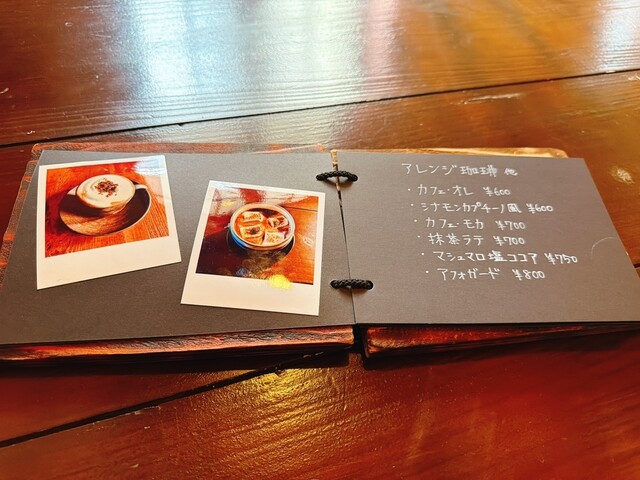 アレンジ珈琲 他
・カフェ・オレ ¥600
・シナモンカプチーノ風 ¥600
・カフェ・モカ ¥700
・抹茶ラテ ¥700
・マシュマロ塩ココア ¥750
・アフォガード ¥800